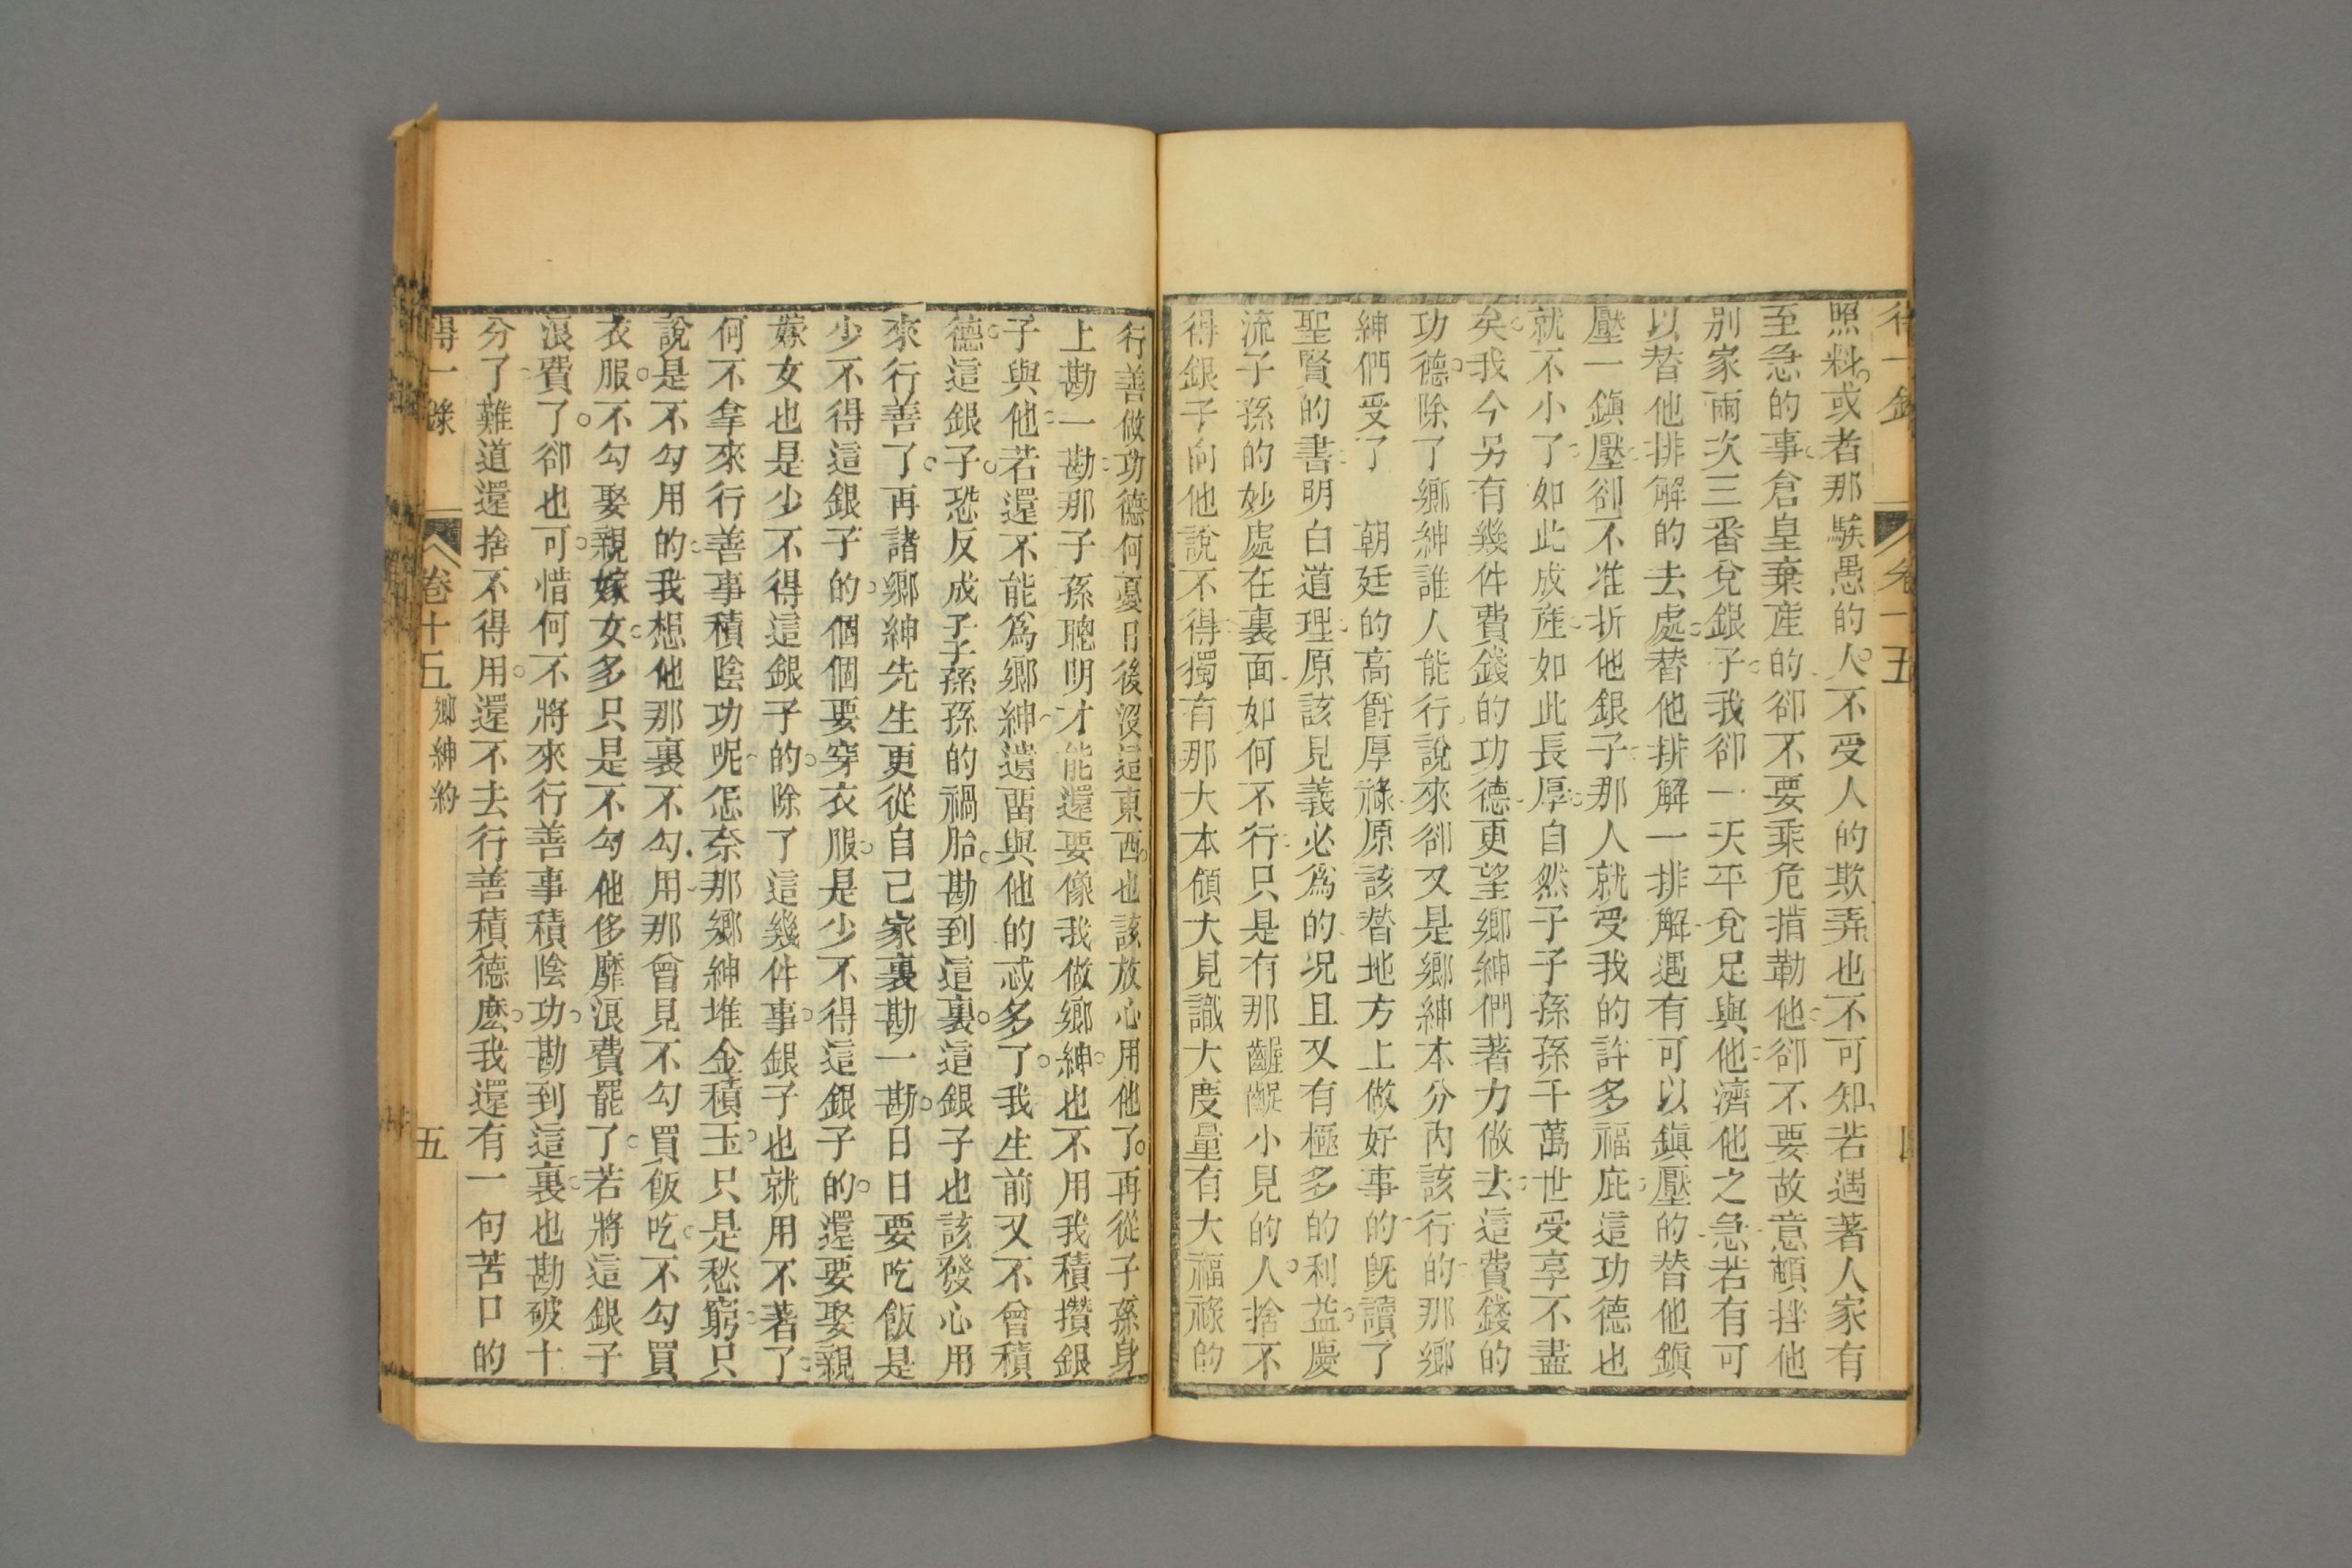 得一錄 卷十五
照料或者那騃愚的人不受人的欺弄也不可知若遇著人家有
至急的事倉皇棄産的卻不要乘危揹勒他卻不要故意頓挫他
別家兩次三番兌銀子我卻一天平兌足與他濟他之急若有可
以替他排解的去處替他排解一排解遇有可以鎭壓的替他鎭
壓一鎭壓卻不准折他銀子那人就受我的許多福庇這功德也
就不小了如此成産如此長厚自然子子孫孫千萬世受享不盡
矣我今另有幾件費錢的功德更望鄕紳們著力做去這費錢的
功德除了鄕紳誰人能行說來卻又是鄕紳本分內該行的那鄕
紳們受了 朝廷的高爵厚祿原該替地方上做好事的旣讀了
聖賢的書明白道理原該見義必爲的况且又有極多的利益慶
流子孫的妙處在裏面如何不行只是有那齷齪小見的人捨不
得銀子向他說不得獨有那大本領大見識大度量有大福祿的
行善做功德何憂日後沒這東西也該放心用他了再從子孫身
上勘一勘那子孫聰明才能還要像我做鄕紳也不用我積攢銀
子與他若還不能爲鄕紳遺畱與他的忒多了我生前又不曾積
德這銀子恐反成子子孫孫的禍胎勘到這裏這銀子也該發心用
來行善了再諸鄕紳先生更從自己家裏勘一勘日日要吃飯是
少不得這銀子的個個要穿衣服是少不得這銀子的還要娶親
嫁女也是少不得這銀子的除了這幾件事銀子也就用不著了
何不拿來行善事積陰功呢怎奈那鄕紳堆金積玉只是愁窮只
說是不勾用的我想他那裏不勾用那曾見不勾買飯吃不勾買
衣服不勾娶親嫁女多只是不勾他侈靡浪費罷了若將這銀子
浪費了卻也可惜何不將來行善事積陰功勘到這裏也勘破十
分了難道還捨不得用還不去行善積德麽我還有一句苦口的
得一錄 卷十五 鄕紳約 五